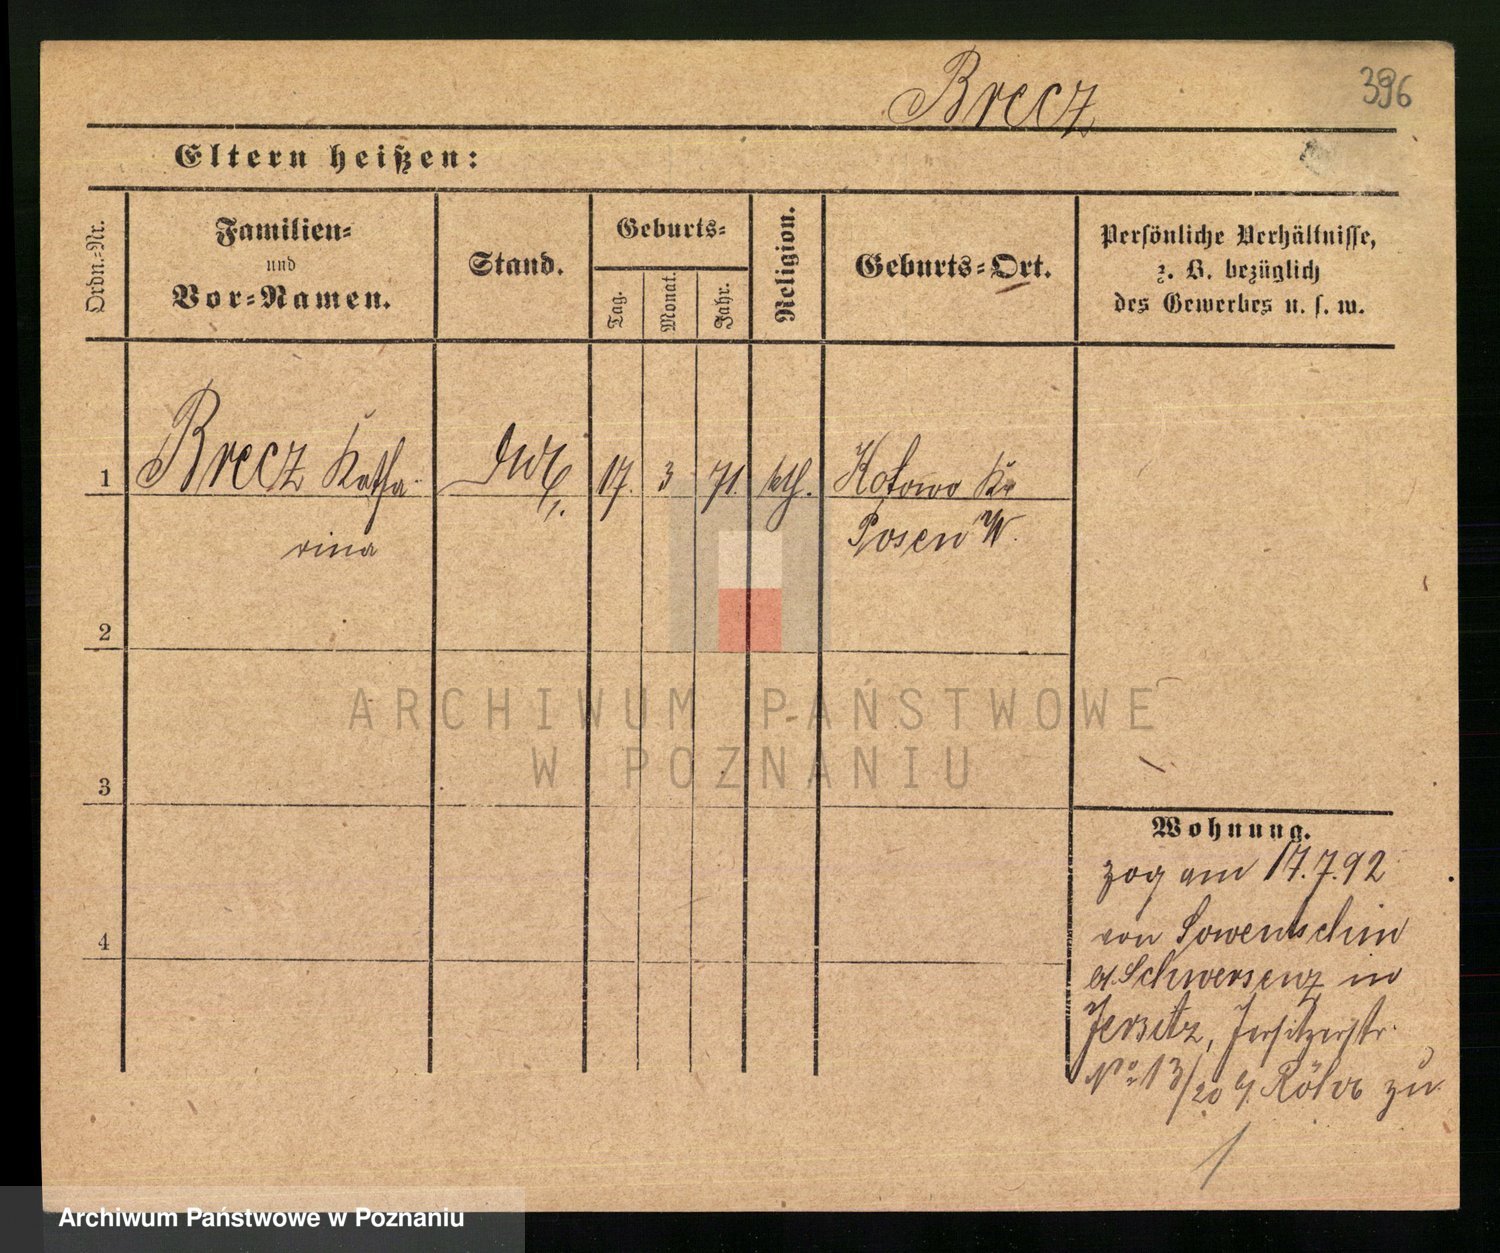 Brecz
396
Eltern heißen:
Ordn.-Nr.
Familien-
und
Vor-Namen.
Stand.
Geburts-
Tag.
Monat.
Jahr.
Religion.
Geburts-Ort.
Persönliche Verhältnisse,
z. B. bezüglich
des Gewerbes u. s. w.
1 Brecz Katha- 17. 3 71. kth. Kotowo Kr
rina Posen W.
2
3
4
Wohnung.
zog am 17.7.92
von Lowentschin
b. Schwersenz in
Jersitz, Jersitzerstr.
No 13/20 b. Röhr zu
ARCHIWUM PAŃSTWOWE
W POZNANIU
Archiwum Państwowe w Poznaniu